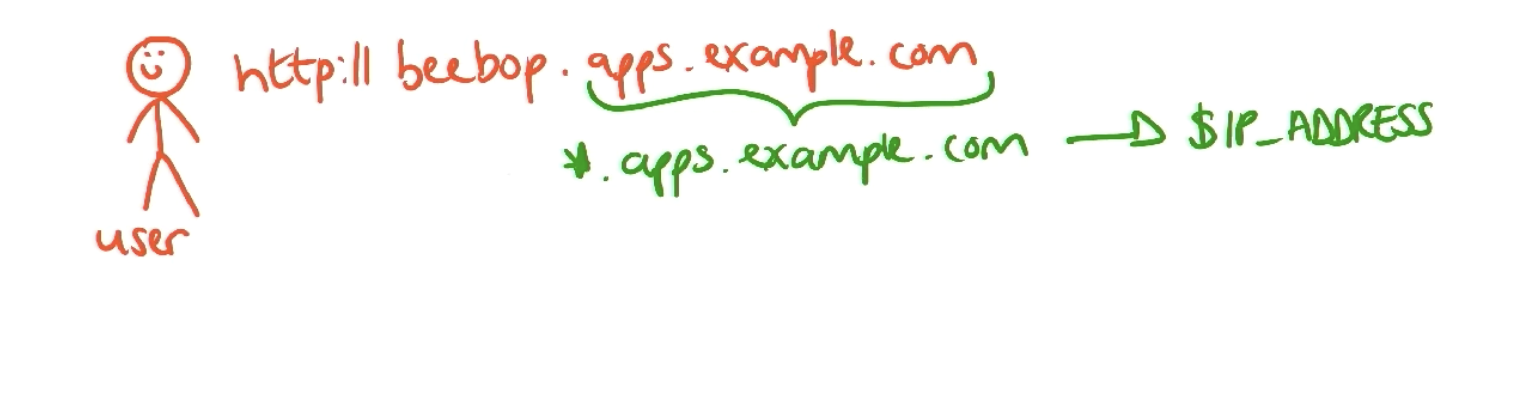 http:// beebop.apps.example.com
*.apps.example.com → $IP_ADDRESS
user